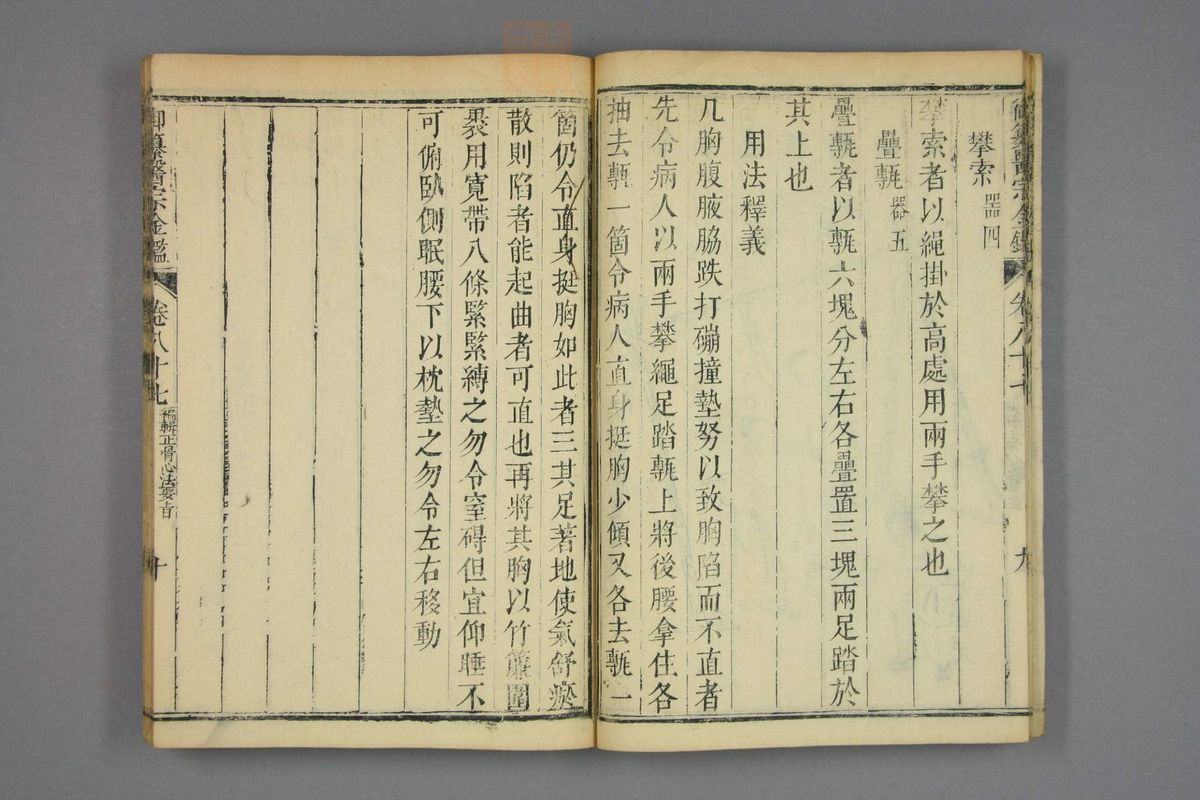 御纂醫宗金鑑 卷八十七 九
攀索 器四
攀索者以繩掛於高處用兩手攀之也
疊甎 器五
疊甎者以甎六塊分左右各疊置三塊兩足踏於
其上也
用法釋義
凡胸腹腋脇跌打磞撞墊努以致胸陷而不直者
先令病人以兩手攀繩足踏甎上將後腰拿住各
抽去甎一箇令病人直身挺胸少傾又各去甎一
箇仍令直身挺胸如此者三其足著地使氣舒瘀
散則陷者能起曲者可直也再將其胸以竹簾圍
裹用寬帶八條緊緊縛之勿令窒碍但宜仰睡不
可俯臥側眠腰下以枕墊之勿令左右移動
御纂醫宗金鑑 卷八十七 編輯正骨心法要旨 十